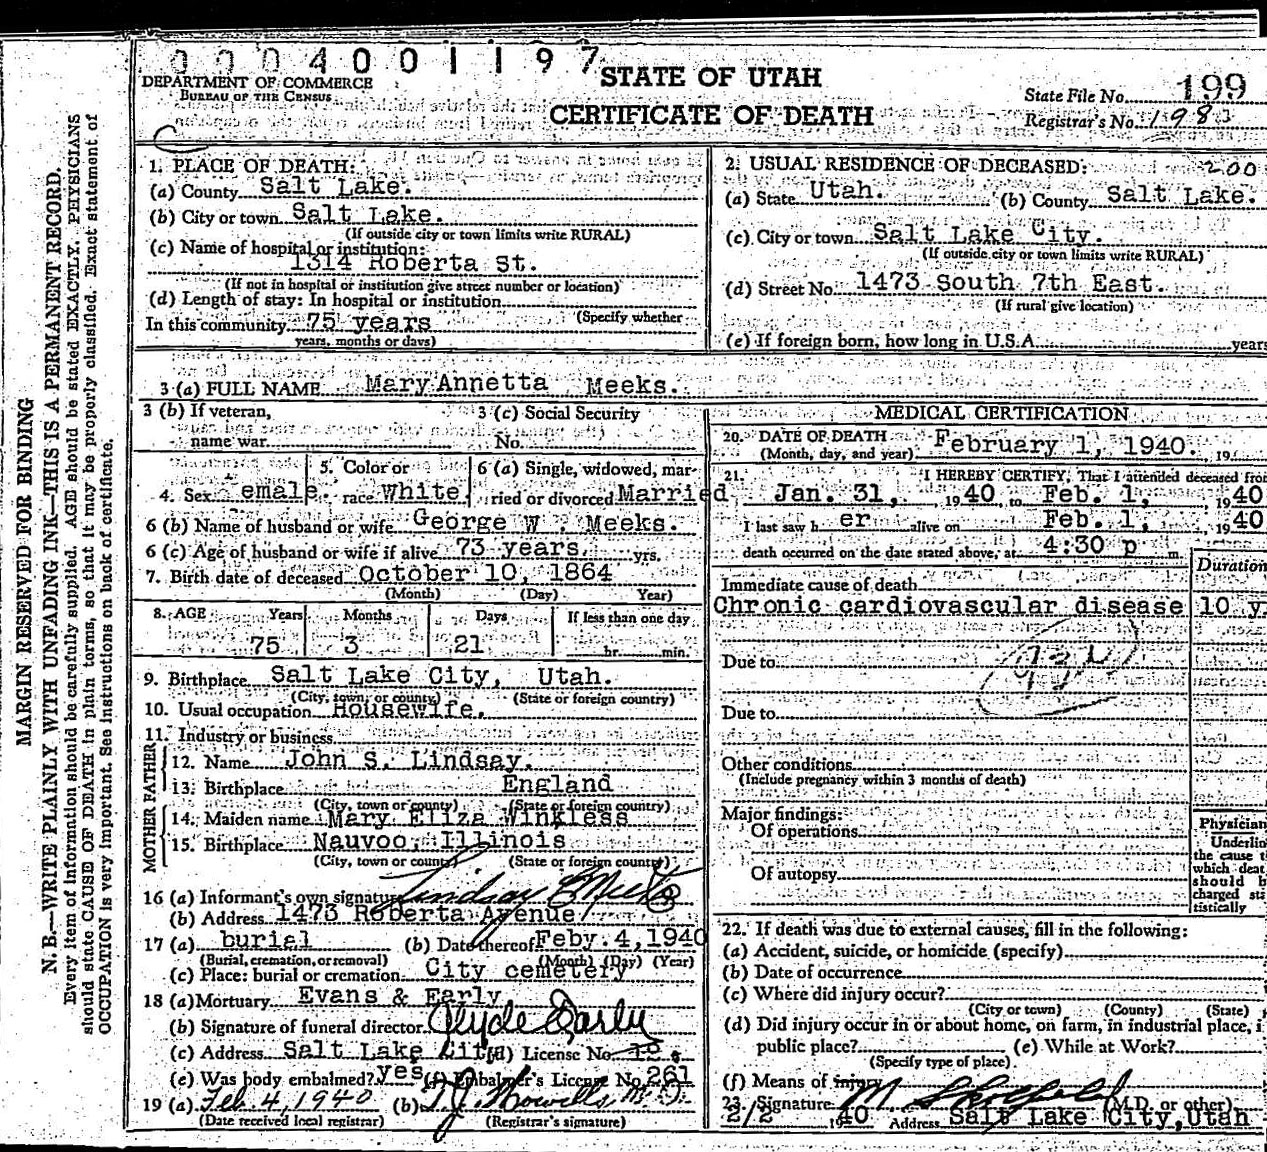 0004001197
DEPARTMENT OF COMMERCE
BUREAU OF THE CENSUS
STATE OF UTAH
CERTIFICATE OF DEATH
State File No. 199
Registrar's No. 198
C
1. PLACE OF DEATH:
(a) County Salt Lake.
(b) City or town Salt Lake.
(If outside city or town limits write RURAL)
(c) Name of hospital or institution:
1314 Roberta St.
(If not in hospital or institution give street number or location)
(d) Length of stay: In hospital or institution
(Specify whether
In this community 75 years
years, months or days)
2. USUAL RESIDENCE OF DECEASED: 200
(a) State Utah. (b) County Salt Lake.
(c) City or town Salt Lake City.
(If outside city or town limits write RURAL)
(d) Street No. 1473 South 7th East.
(If rural give location)
(e) If foreign born, how long in U.S.A. years
3 (a) FULL NAME Mary Annetta Meeks.
3 (b) If veteran,
name war
3 (c) Social Security
No.
4. Sex emale 5. Color or race White 6 (a) Single, widowed, married or divorced Married
6 (b) Name of husband or wife George W . Meeks.
6 (c) Age of husband or wife if alive 73 years. yrs.
7. Birth date of deceased October 10, 1864
(Month) (Day) Year)
8. AGE Years Months Days If less than one day
75 3 21 hr. min.
9. Birthplace Salt Lake City, Utah.
(City, town, or county) (State or foreign country)
10. Usual occupation Housewife.
11. Industry or business
FATHER
12. Name John S. Lindsay.
13. Birthplace England
(City, town or county) (State or foreign country)
MOTHER
14. Maiden name Mary Eliza Winkless
15. Birthplace Nauvoo, Illinois
(City, town or county) (State or foreign country)
16 (a) Informant's own signature Lindsay E Meeks
(b) Address 1473 Roberta Avenue
17 (a) burial (b) Date thereof Feby. 4, 1940
(Burial, cremation, or removal) (Month) (Day) (Year)
(c) Place: burial or cremation City cemetery
18 (a) Mortuary Evans & Early
(b) Signature of funeral director Clyde Early
(c) Address Salt Lake City (d) License No.
(e) Was body embalmed? yes (f) Embalmer's License No. 261
19 (a) Feb 4, 1940 (b) T.J. Howells M.D.
(Date received local registrar) (Registrar's signature)
MEDICAL CERTIFICATION
20. DATE OF DEATH
(Month, day, and year) February 1, 1940. 19
21. I HEREBY CERTIFY, That I attended deceased from
Jan. 31, 1940 to Feb. 1, 1940
I last saw h er alive on Feb. 1, 1940
death occurred on the date stated above, at 4:30 p m.
Duration
Immediate cause of death
Chronic cardiovascular disease 10 y
Due to
Due to
Other conditions
(Include pregnancy within 3 months of death)
Major findings:
Of operations
Of autopsy
Physician
Underlin
the cause t
which deat
should b
charged sta
tistically
22. If death was due to external causes, fill in the following:
(a) Accident, suicide, or homicide (specify)
(b) Date of occurrence
(c) Where did injury occur?
(City or town) (County) (State)
(d) Did injury occur in or about home, on farm, in industrial place, i
public place? (e) While at Work?
(Specify type of place)
(f) Means of injury
23. Signature M (M.D. or other)
2/2 1940 Address Salt Lake City, Utah
MARGIN RESERVED FOR BINDING
N. B.—WRITE PLAINLY WITH UNFADING INK—THIS IS A PERMANENT RECORD.
Every item of information should be carefully supplied. AGE should be stated EXACTLY. PHYSICIANS
should state CAUSE OF DEATH in plain terms, so that it may be properly classified. Exact statement of
OCCUPATION is very important. See instructions on back of certificate.